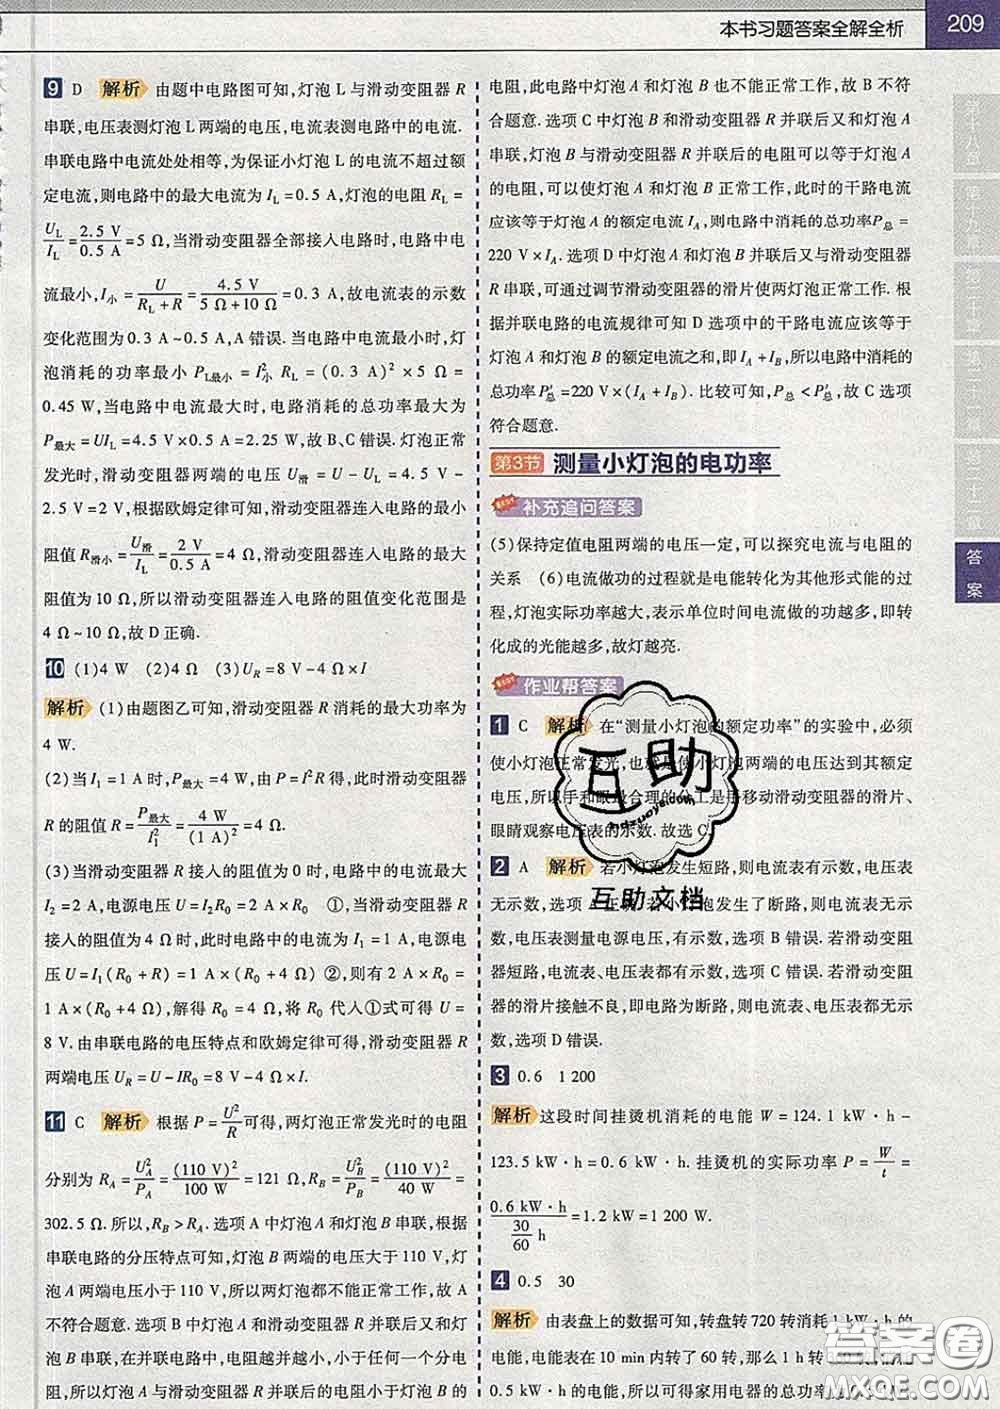 本书习题答案全解全析
209
9 D 解析 由题中电路图可知,灯泡 L 与滑动变阻器 R
串联,电压表测灯泡 L 两端的电压,电流表测电路中的电流.
串联电路中电流处处相等,为保证小灯泡 L 的电流不超过额
定电流,则电路中的最大电流为 I_L=0.5 A,灯泡的电阻 R_L=
U_L/I_L=2.5 V/0.5 A=5 Ω,当滑动变阻器全部接入电路时,电路中电
流最小,I_小=U/(R_L+R)=4.5 V/(5 Ω+10 Ω)=0.3 A,故电流表的示数
变化范围为 0.3 A~0.5 A,A 错误. 当电路中电流最小时,灯
泡消耗的功率最小 P_L最小=I²_小 R_L=(0.3 A)²×5 Ω=
0.45 W,当电路中电流最大时,电路消耗的总功率最大为
P_最大=UI_L=4.5 V×0.5 A=2.25 W,故 B、C 错误. 灯泡正常
发光时,滑动变阻器两端的电压 U_滑=U-U_L=4.5 V-
2.5 V=2 V,根据欧姆定律可知,滑动变阻器连入电路的最小
阻值 R_滑小=U_滑/I_L=2 V/0.5 A=4 Ω,滑动变阻器连入电路的最大
阻值为 10 Ω,所以滑动变阻器连入电路的阻值变化范围是
4 Ω~10 Ω,故 D 正确.
10 (1)4 W (2)4 Ω (3)U_R=8 V-4 Ω×I
解析 (1)由题图乙可知,滑动变阻器 R 消耗的最大功率为
4 W.
(2)当 I₁=1 A 时,P_最大=4 W,由 P=I²R 得,此时滑动变阻器
R 的阻值 R=P_最大/I₁²=4 W/(1 A)²=4 Ω.
(3)当滑动变阻器 R 接入的阻值为 0 时,电路中的电流最大
I₂=2 A,电源电压 U=I₂R₀=2 A×R₀ ①,当滑动变阻器 R
接入的阻值为 4 Ω 时,此时电路中的电流为 I₁=1 A,电源电
压 U=I₁(R₀+R)=1 A×(R₀+4 Ω) ②,则有 2 A×R₀=
1 A×(R₀+4 Ω),解得 R₀=4 Ω,将 R₀ 代入①式可得 U=
8 V. 由串联电路的电压特点和欧姆定律可得,滑动变阻器 R
两端电压 U_R=U-IR₀=8 V-4 Ω×I.
11 C 解析 根据 P=U²/R 可得,两灯泡正常发光时的电阻
分别为 R_A=U_A²/P_A=(110 V)²/100 W=121 Ω,R_B=U_B²/P_B=(110 V)²/40 W=
302.5 Ω.所以,R_B>R_A. 选项 A 中灯泡 A 和灯泡 B 串联,根据
串联电路的分压特点可知,灯泡 B 两端的电压大于 110 V,灯
泡 A 两端电压小于 110 V,所以两灯泡都不能正常工作,故 A
不符合题意. 选项 B 中灯泡 A 和滑动变阻器 R 并联后与灯
泡 B 串联,在并联电路中,电阻越并越小,且小于任何一个分电
阻,所以灯泡 A 与滑动变阻器 R 并联后的电阻小于灯泡 B 的
电阻,此电路中灯泡 A 和灯泡 B 也不能正常工作,故 B 不符
合题意. 选项 C 中灯泡 B 和滑动变阻器 R 并联后又和灯泡 A
串联,灯泡 B 与滑动变阻器 R 并联后的电阻可以等于灯泡 A
的电阻,可以使灯泡 A 和灯泡 B 正常工作,此时的干路电流
应该等于灯泡 A 的额定电流 I_A,则电路中消耗的总功率P_总=
220 V×I_A. 选项 D 中灯泡 A 和灯泡 B 并联后又与滑动变阻器
R 串联,可通过调节滑动变阻器的滑片使两灯泡正常工作. 根
据并联电路的电流规律可知 D 选项中的干路电流应该等于
灯泡 A 和灯泡 B 的额定电流之和,即 I_A+I_B,所以电路中消耗的
总功率 P'_总=220 V×(I_A+I_B). 比较可知,P_总<P'_总,故 C 选项
符合题意.
第3节 测量小灯泡的电功率
补充追问答案
(5)保持定值电阻两端的电压一定,可以探究电流与电阻的
关系 (6)电流做功的过程就是电能转化为其他形式能的过
程,灯泡实际功率越大,表示单位时间电流做的功越多,即转
化成的光能越多,故灯越亮.
作业帮答案
1 C 解析 在“测量小灯泡的额定功率”的实验中,必须
使小灯泡正常发光,也就是使小灯泡两端的电压达到其额定
电压,所以手和眼最合理的分工是手移动滑动变阻器的滑片、
眼睛观察电压表的示数. 故选 C.
2 A 解析 若小灯泡发生短路,则电流表有示数,电压表
无示数,选项 A 正确. 若小灯泡发生了断路,则电流表无示
数,电压表测量电源电压,有示数,选项 B 错误. 若滑动变阻
器短路,电流表、电压表都有示数,选项 C 错误. 若滑动变阻
器的滑片接触不良,即电路为断路,则电流表、电压表都无示
数,选项 D 错误.
3 0.6 1 200
解析 这段时间挂烫机消耗的电能 W=124.1 kW·h-
123.5 kW·h=0.6 kW·h. 挂烫机的实际功率 P=W/t=
0.6 kW·h/(30/60 h)=1.2 kW=1 200 W.
4 0.5 30
解析 由表盘上的数据可知,转盘转 720 转消耗 1 kW·h 的
电能,电能表在 10 min 内转了 60 转,那么 1 h 转
0.5 kW·h 的电能,所以可得家用电器的总功率
第十八章
答案
互助
互助文档
答案圈